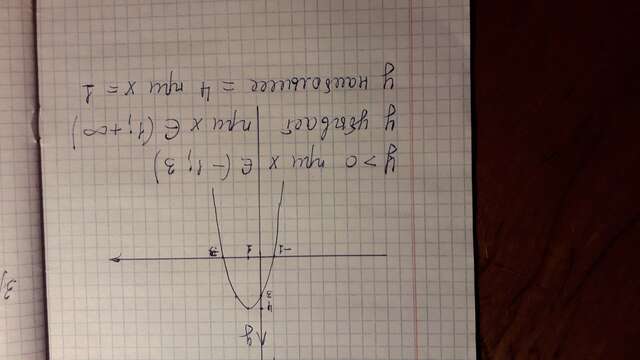 y
4
3
-1
1
3
y > 0 при x ∈ (-1; 3)
y убывает при x ∈ (1; +∞)
y наибольшее = 4 при x = 1
3)